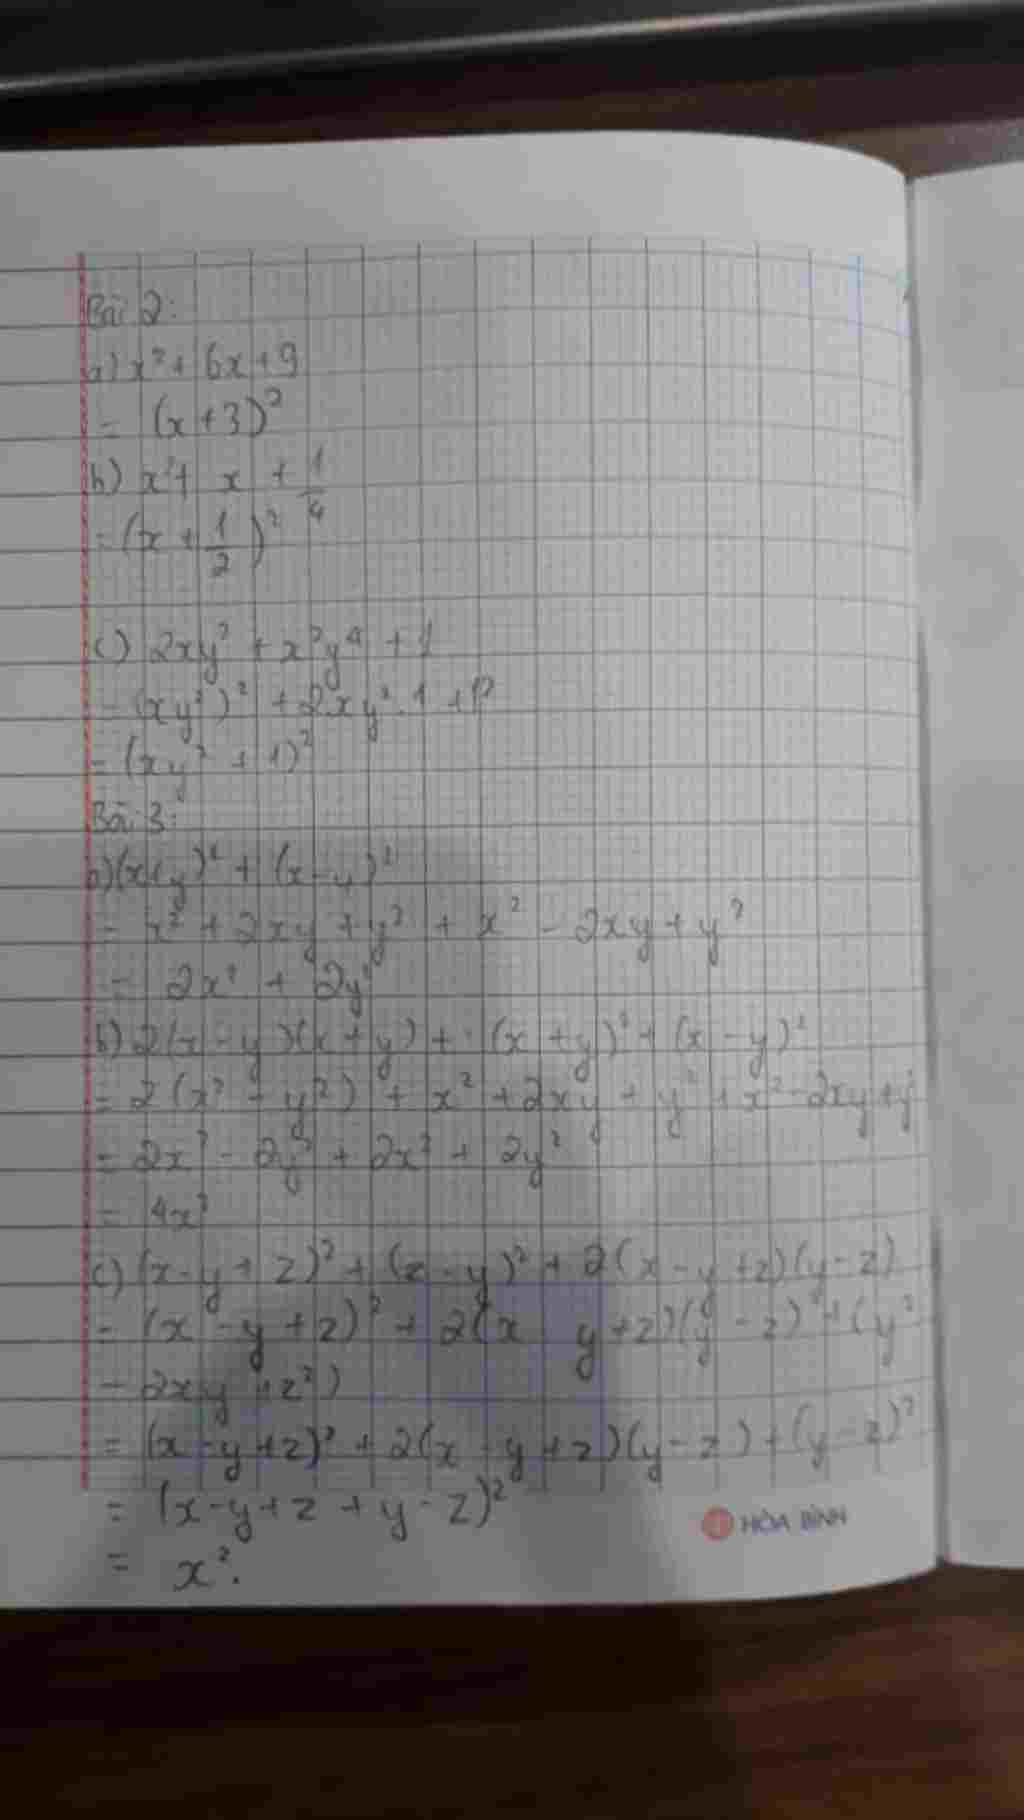 Bài 2:
a) x² + 6x + 9
= (x + 3)²
b) x² + x + 1/4
= (x + 1/2)²
c) 2xy² + x²y⁴ + 1
= (xy²)² + 2xy².1 + 1²
= (xy² + 1)²
Bài 3:
a) (x+y)² + (x-y)²
= x² + 2xy + y² + x² - 2xy + y²
= 2x² + 2y²
b) 2(x - y)(x + y) + (x + y)² + (x - y)²
= 2(x² - y²) + x² + 2xy + y² + x² - 2xy + y²
= 2x² - 2y² + 2x² + 2y²
= 4x²
c) (x-y+z)² + (z-y)² + 2(x-y+z)(y-z)
= (x-y+z)² + 2(x y+z)(y-z) + (y²
- 2xy + z²)
= (x-y+z)² + 2(x-y+z)(y-z) + (y-z)²
= (x-y+z+y-z)²
= x².
HÒA BÌNH